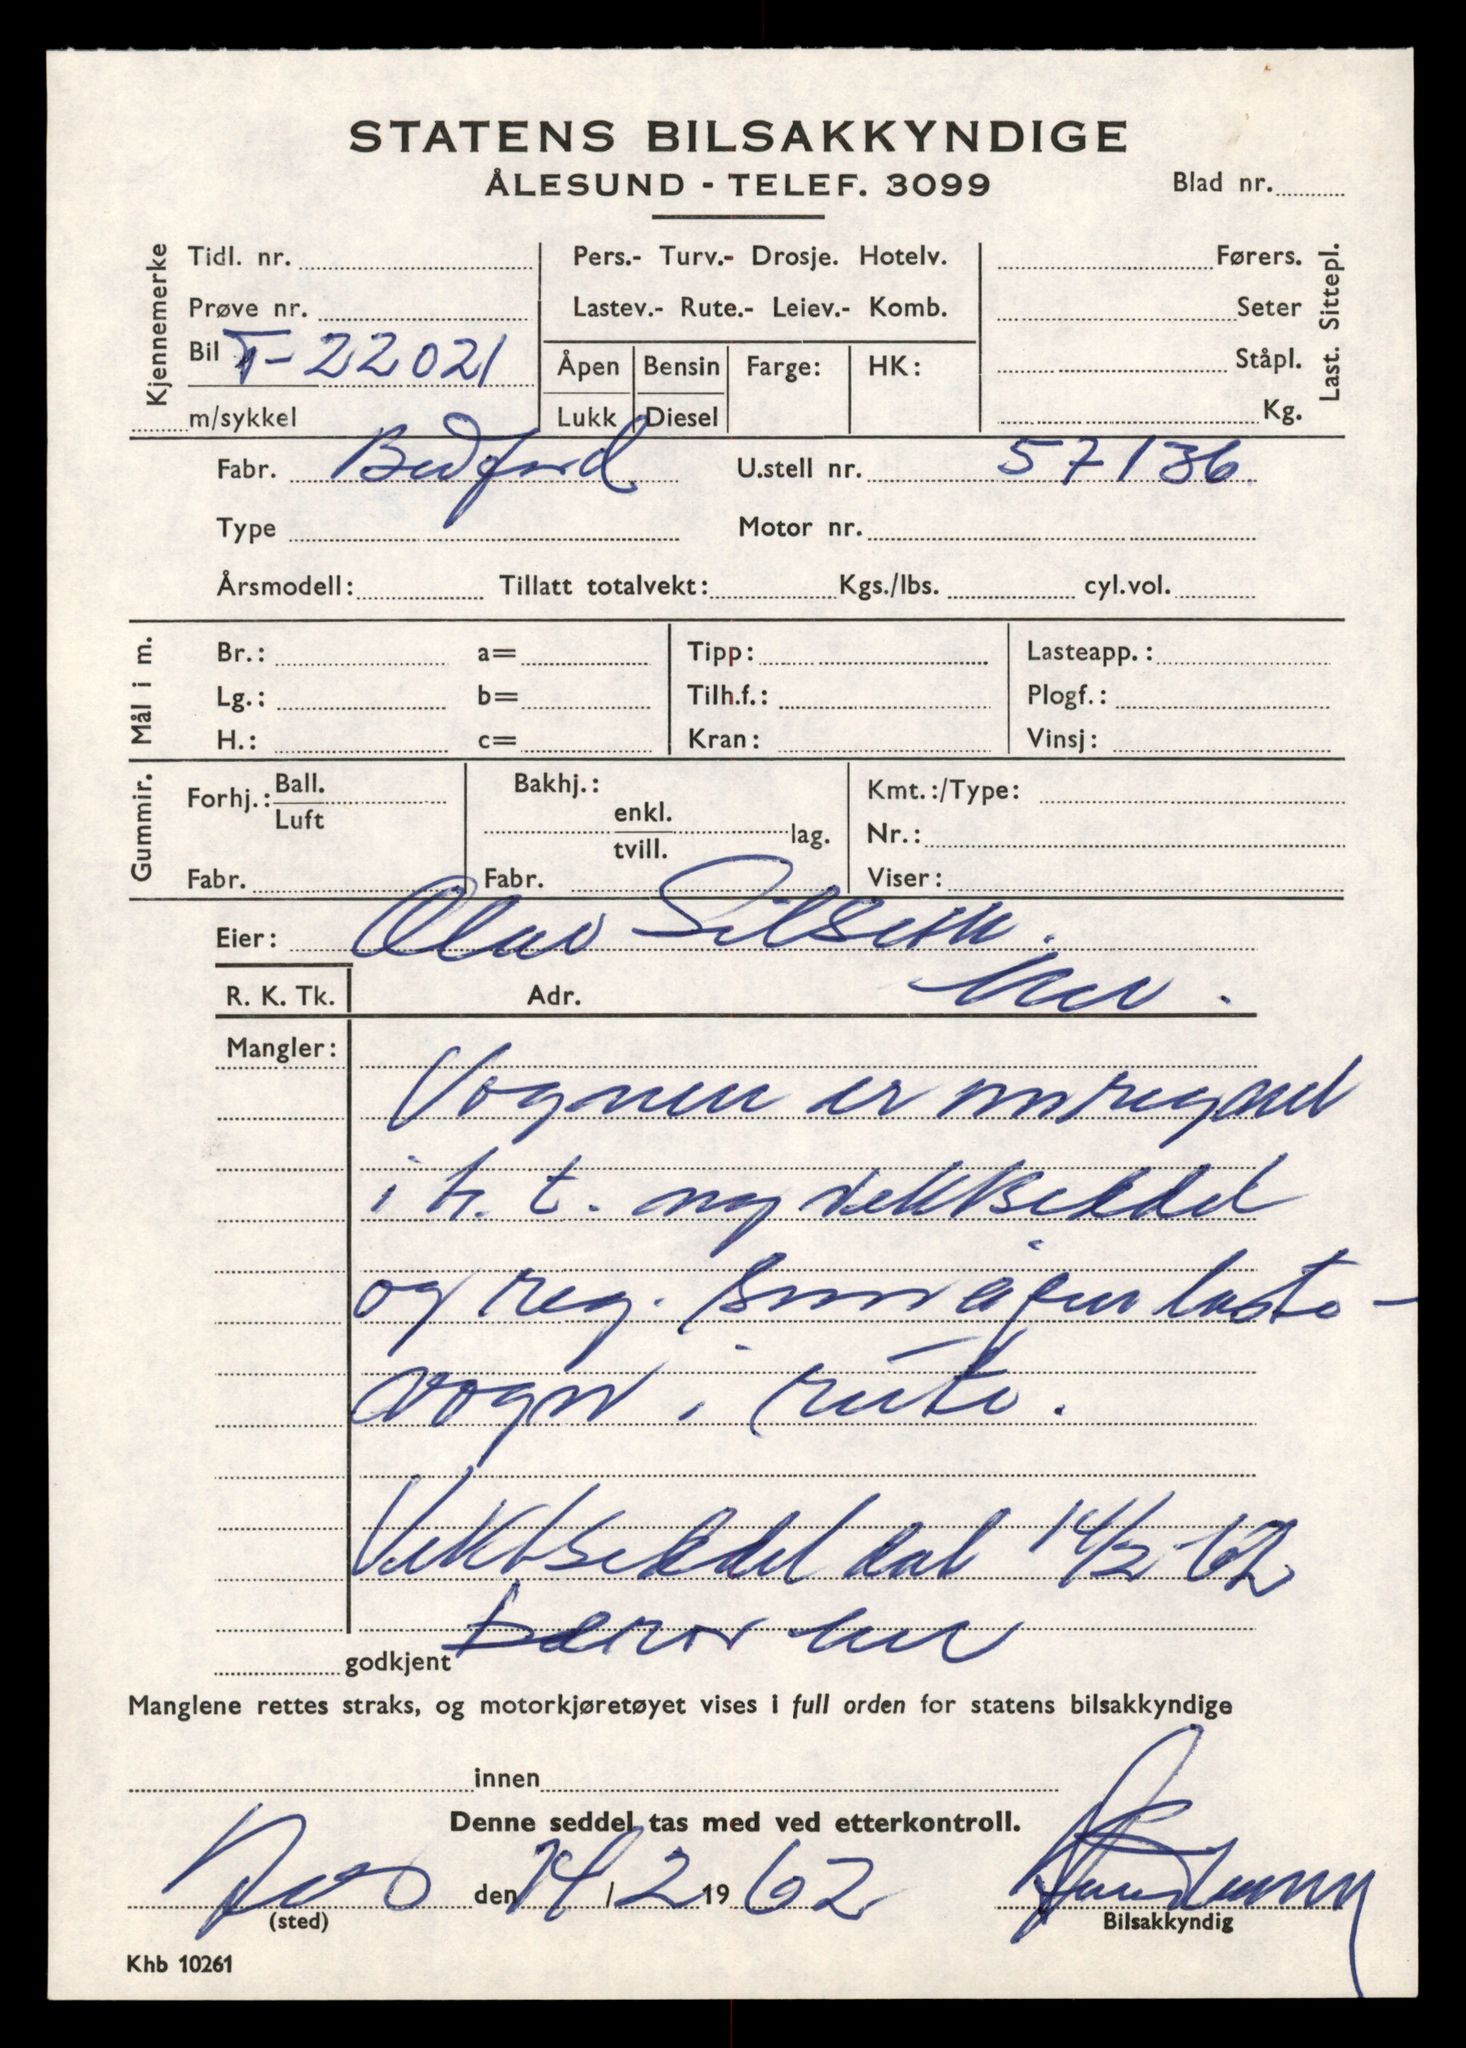 STATENS BILSAKKYNDIGE
ÅLESUND - TELEF. 3099
Blad nr.
Kjennemerke
Tidl. nr.
Prøve nr.
Bil T-22021
m/sykkel
Pers.- Turv.- Drosje. Hotelv.
Lastev.- Rute.- Leiev.- Komb.
Åpen
Lukk
Bensin
Diesel
Farge:
HK:
Førers.
Seter
Ståpl.
Kg.
Last. Sittepl.
Fabr. Bedford U.stell nr. 57136
Type Motor nr.
Årsmodell: Tillatt totalvekt: Kgs./lbs. cyl.vol.
Mål i m.
Br.: a= Tipp: Lasteapp.:
Lg.: b= Tilh.f.: Plogf.:
H.: c= Kran: Vinsj:
Gummir.
Forhj.: Ball.
Luft
Fabr.
Bakhj.:
enkl.
tvill. lag.
Fabr.
Kmt.:/Type:
Nr.:
Viser:
Eier: Olav Silseth.
R. K. Tk. Adr.
Mangler:
Vognen er omregnet
i h. t. ny vektseddel
og reg. som åpen laste-
vogn i rute.
Vektseddel dat 14/2-62
godkjent
Manglene rettes straks, og motorkjøretøyet vises i full orden for statens bilsakkyndige
innen
Denne seddel tas med ved etterkontroll.
den 14/2 1962
(sted)
Bilsakkyndig
Khb 10261